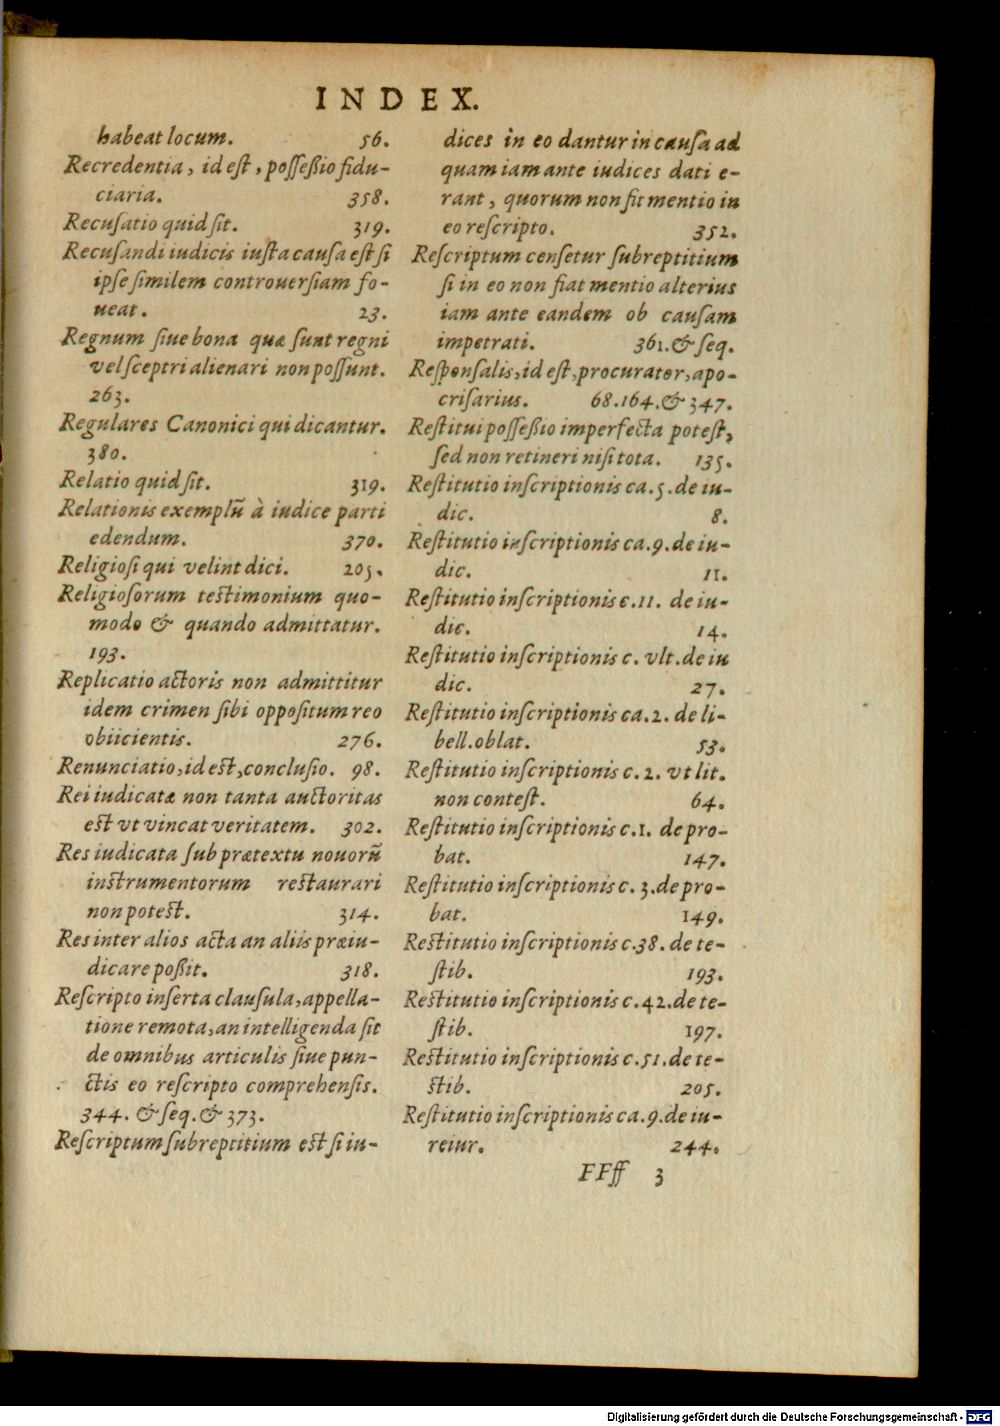 INDEX.
habeat locum. 56.
Recredentia, id est, posseßio fidu-
ciaria. 358.
Recusatio quid sit. 319.
Recusandi iudicis iusta causa est si
ipse similem controuersiam fo-
ueat. 23.
Regnum siue bona quæ sunt regni
vel sceptri alienari non possunt.
263.
Regulares Canonici qui dicantur.
380.
Relatio quid sit. 319.
Relationis exemplũ à iudice parti
edendum. 370.
Religiosi qui velint dici. 205.
Religiosorum testimonium quo-
modo & quando admittatur.
193.
Replicatio actoris non admittitur
idem crimen sibi oppositum reo
obiicientis. 276.
Renunciatio, id est, conclusio. 98.
Rei iudicatæ non tanta auctoritas
est vt vincat veritatem. 302.
Res iudicata sub prætextu nouorũ
instrumentorum restaurari
non potest. 314.
Res inter alios acta an aliis præiu-
dicare poßit. 318.
Rescripto inserta clausula, appella-
tione remota, an intelligenda sit
de omnibus articulis siue pun-
ctis eo rescripto comprehensis.
344. & seq. & 373.
Rescriptum subreptitium est si iu-
dices in eo dantur in causa ad
quam iam ante iudices dati e-
rant, quorum non fit mentio in
eo rescripto. 352.
Rescriptum censetur subreptitium
si in eo non fiat mentio alterius
iam ante eandem ob causam
impetrati. 361. & seq.
Responsalis, id est, procurator, apo-
crisarius. 68. 164. & 347.
Restitui possessio imperfecta potest,
sed non retineri nisi tota. 135.
Restitutio inscriptionis ca. 5. de iu-
dic. 8.
Restitutio inscriptionis ca. 9. de iu-
dic. 11.
Restitutio inscriptionis c. 11. de iu-
dic. 14.
Restitutio inscriptionis c. vlt. de iu
dic. 27.
Restitutio inscriptionis ca. 2. de li-
bell. oblat. 53.
Restitutio inscriptionis c. 2. vt lit.
non contest. 64.
Restitutio inscriptionis c. 1. de pro-
bat. 147.
Restitutio inscriptionis c. 3. de pro-
bat. 149.
Restitutio inscriptionis c. 38. de te-
stib. 193.
Restitutio inscriptionis c. 42. de te-
stib. 197.
Restitutio inscriptionis c. 51. de te-
stib. 205.
Restitutio inscriptionis ca. 9. de iu-
reiur. 244.
FFff 3
Digitalisierung gefördert durch die Deutsche Forschungsgemeinschaft - DFG